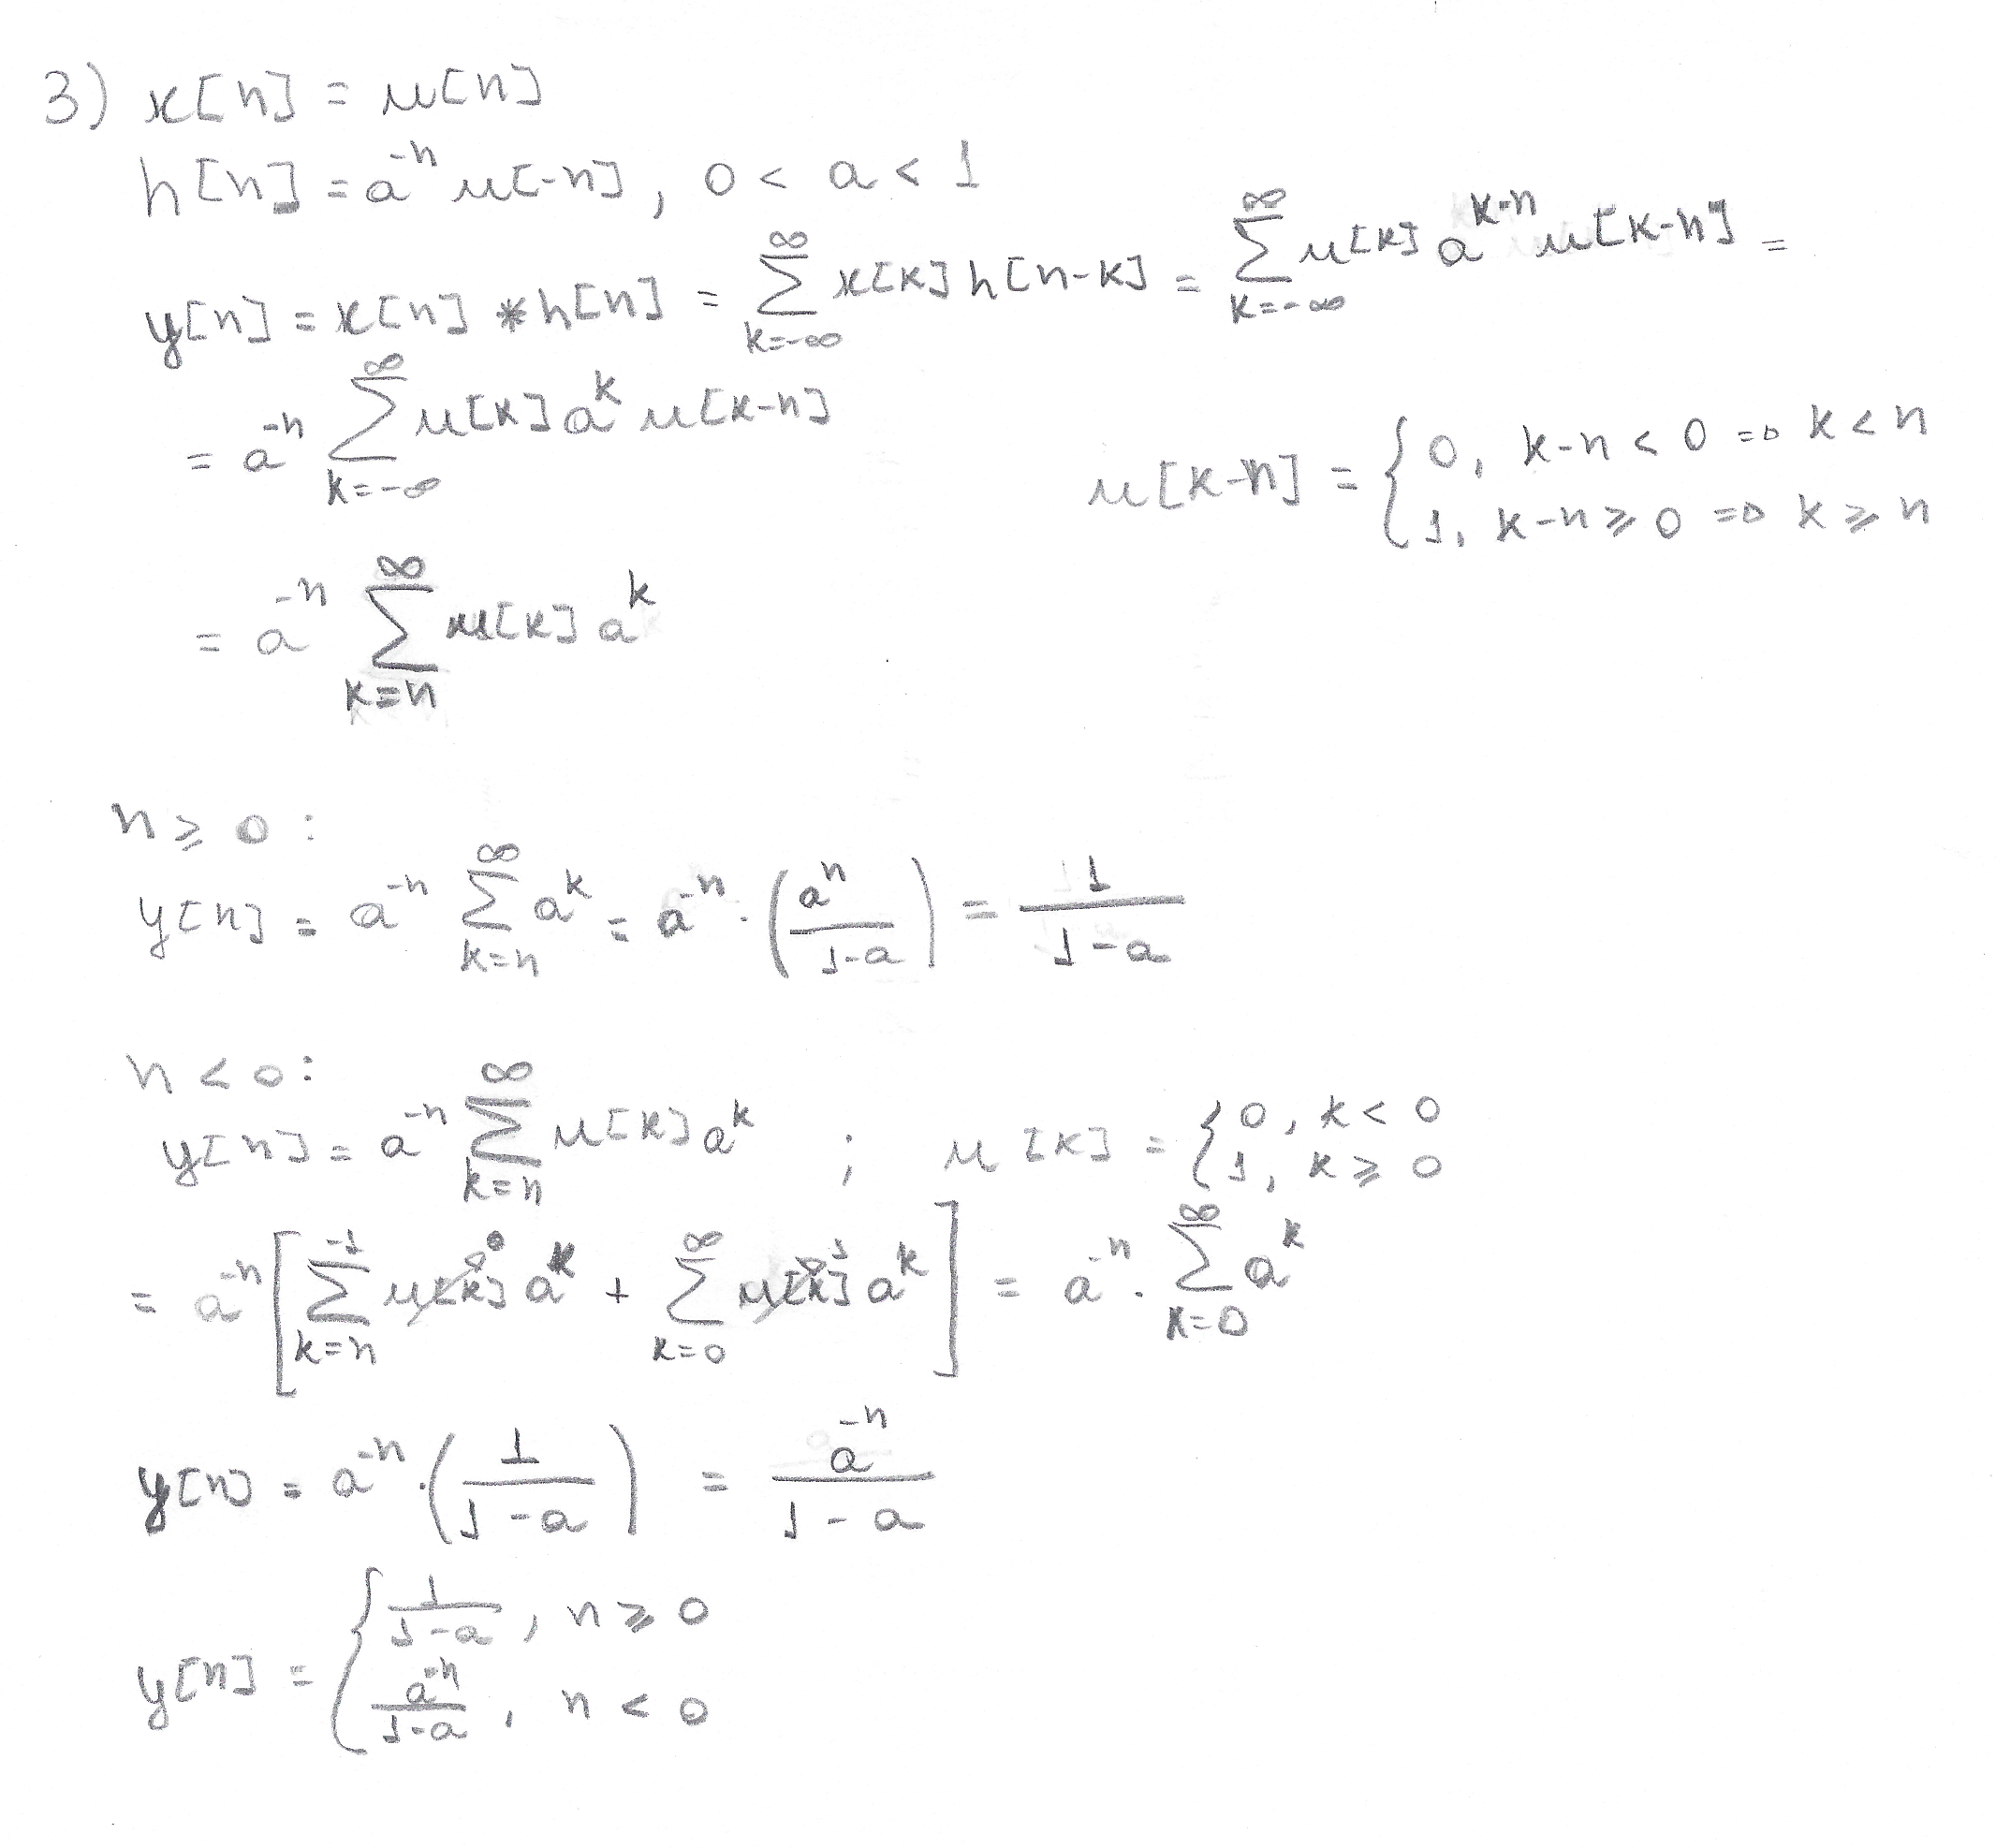 3) x[n] = u[n]
h[n] = a^{-n} u[-n], 0 < a < 1
y[n] = x[n] * h[n] = \sum_{k=-∞}^{∞} x[k] h[n-k] = \sum_{k=-∞}^{∞} u[k] a^{k-n} u[k-n] =
= a^{-n} \sum_{k=-∞}^{∞} u[k] a^{k} u[k-n]
u[k-n] = { 0, k-n < 0 => k < n
1, k-n ≥ 0 => k ≥ n
= a^{-n} \sum_{k=n}^{∞} u[k] a^{k}
n ≥ 0 :
y[n] = a^{-n} \sum_{k=n}^{∞} a^{k} = a^{-n} · ( \frac{a^{n}}{1-a} ) = \frac{1}{1-a}
n < 0 :
y[n] = a^{-n} \sum_{k=n}^{∞} u[k] a^{k} ; u[k] = { 0, k < 0
1, k ≥ 0
= a^{-n} [ \sum_{k=n}^{-1} u[k]^{0} a^{k} + \sum_{k=0}^{∞} u[k]^{1} a^{k} ] = a^{-n} · \sum_{k=0}^{∞} a^{k}
y[n] = a^{-n} · ( \frac{1}{1-a} ) = \frac{a^{-n}}{1-a}
y[n] = { \frac{1}{1-a}, n ≥ 0
\frac{a^{-n}}{1-a}, n < 0